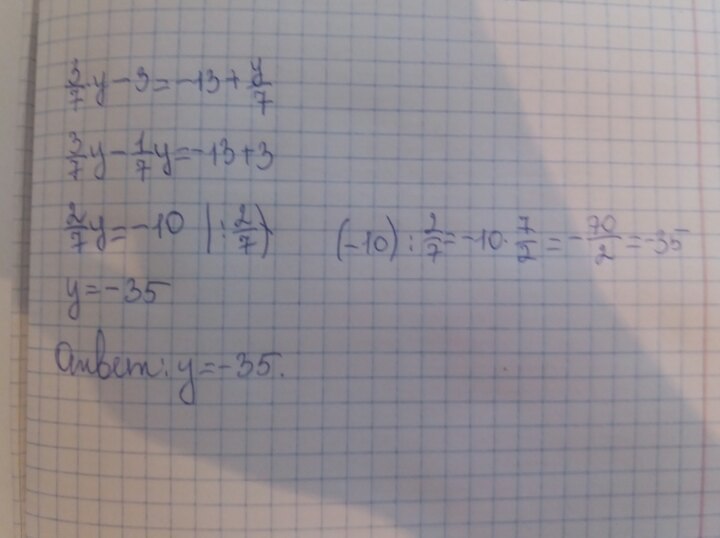 3/7 y − 3 = −13 + y/7
3/7 y − 1/7 y = −13 + 3
2/7 y = −10 | : 2/7)
(−10) : 2/7 = −10 · 7/2 = −70/2 = −35
y = −35
Ответ: y = −35.